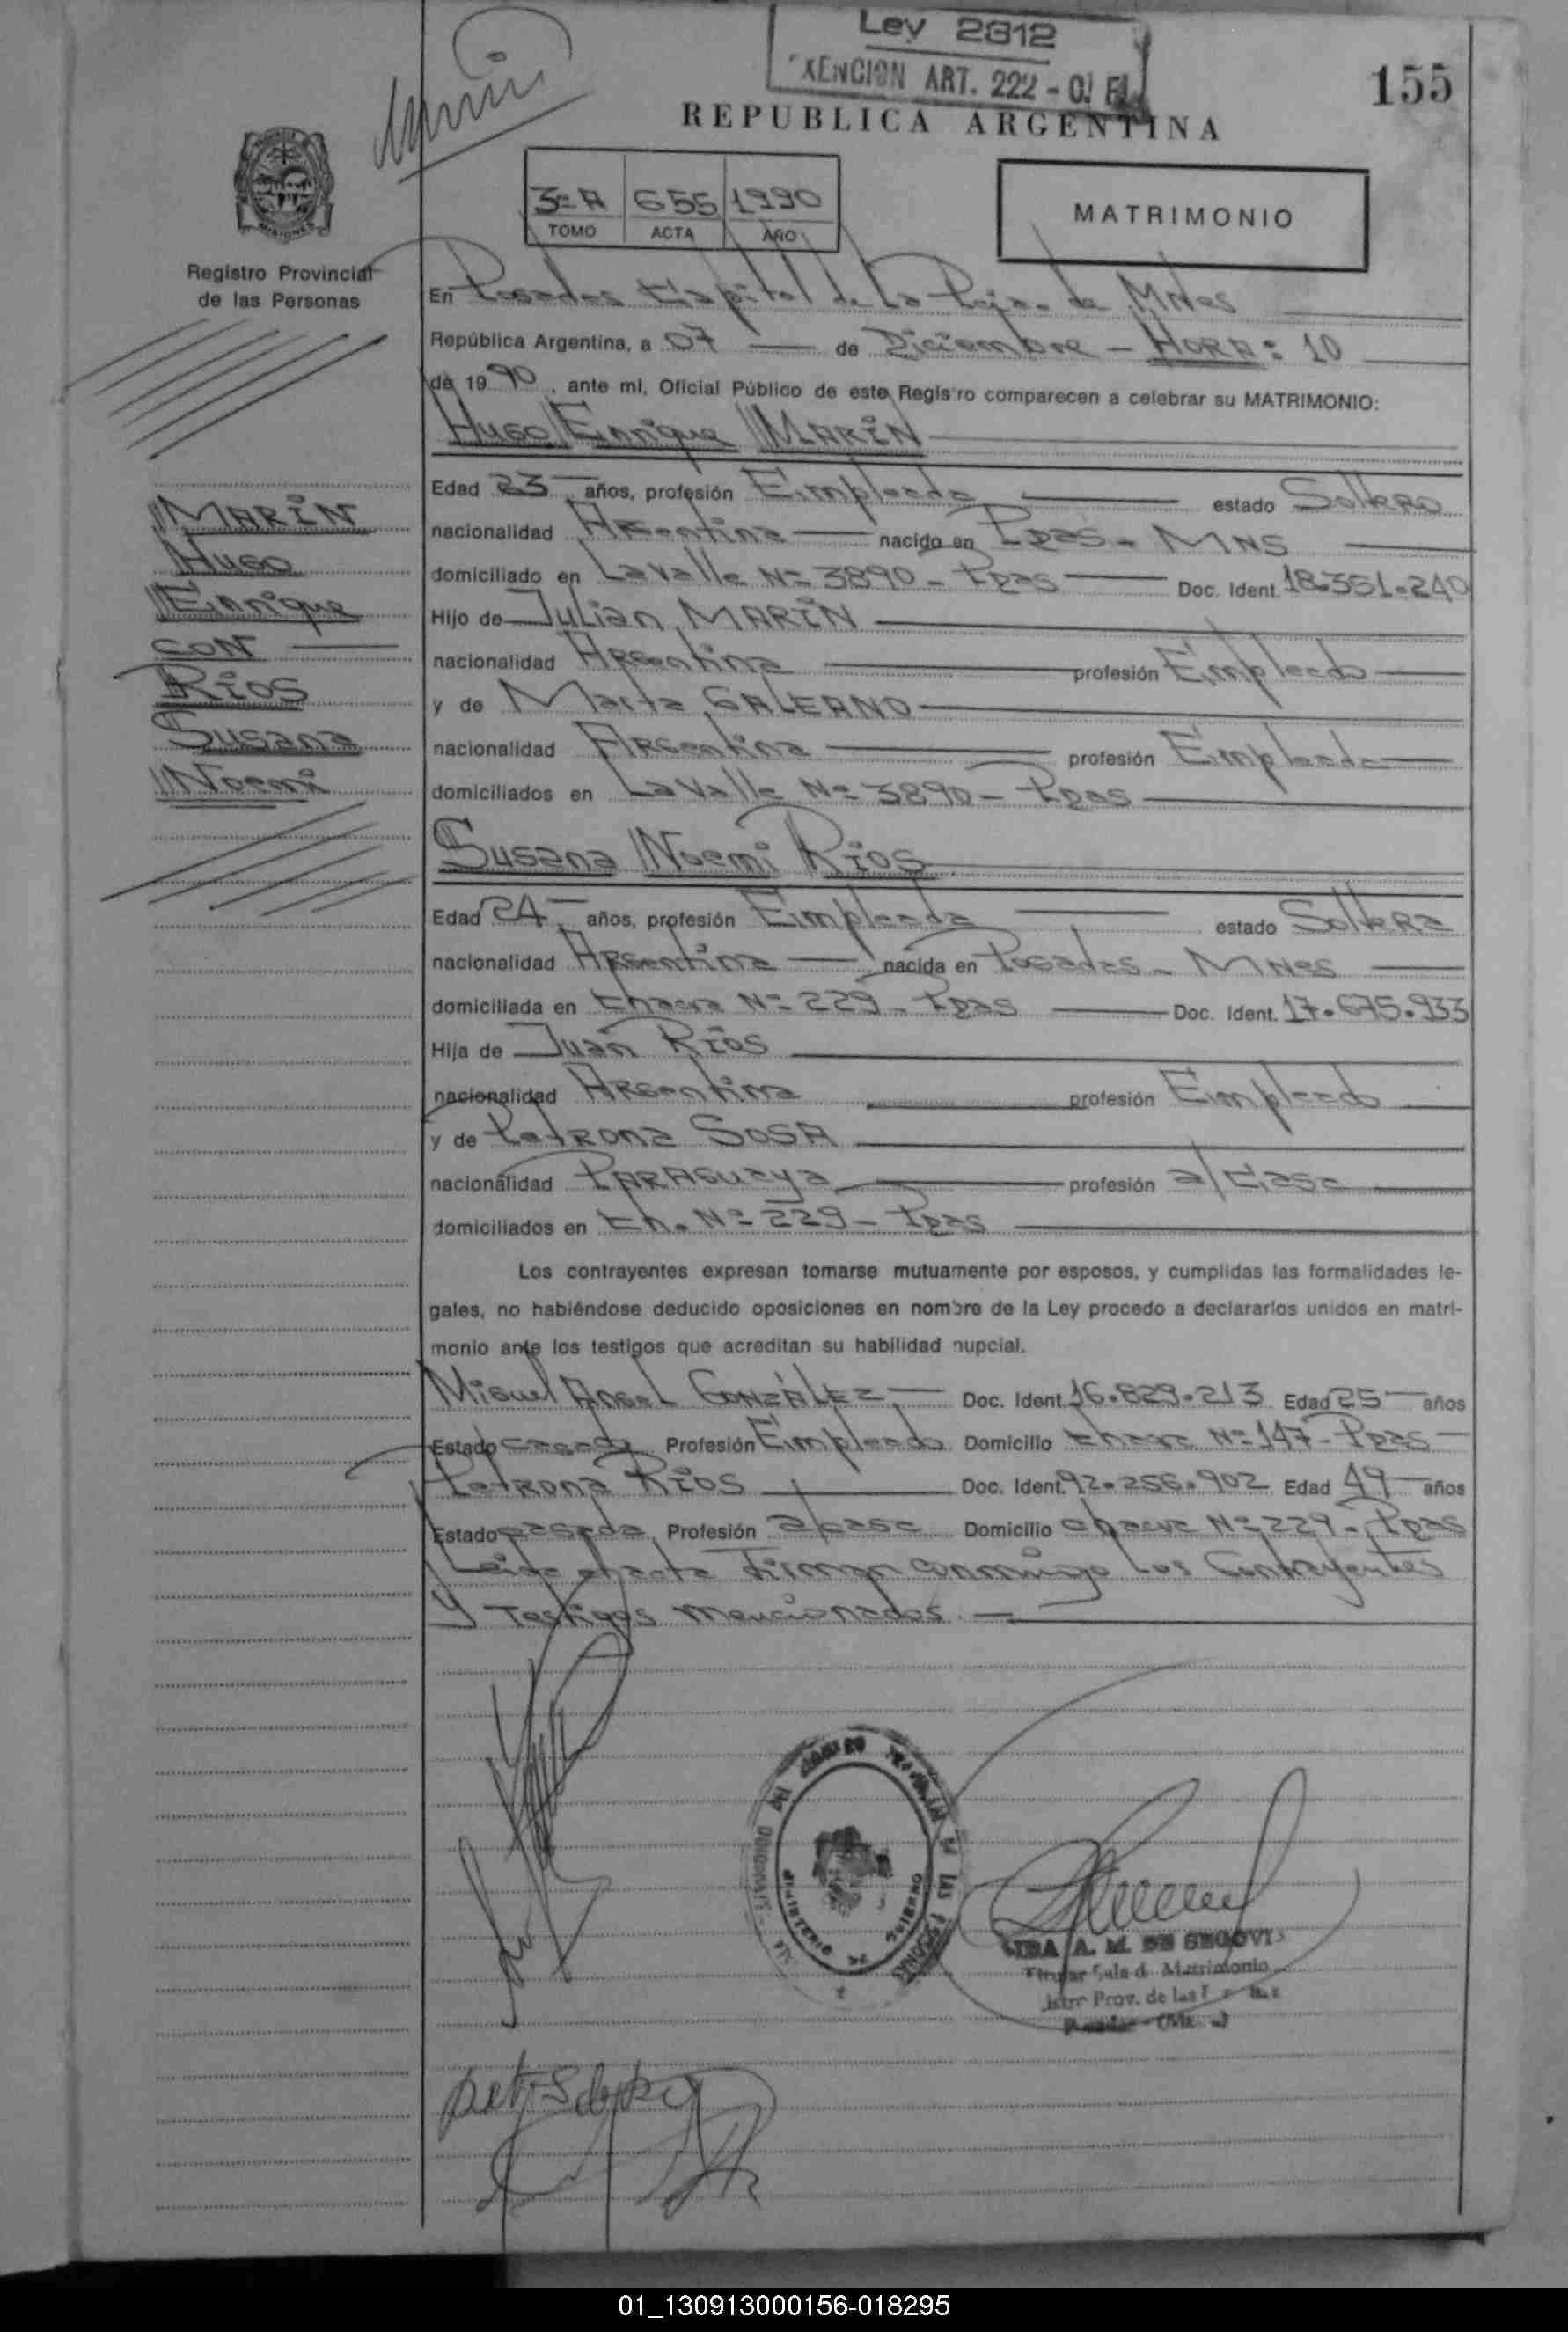 Ley 2312
EXENCION ART. 222 - C. F.
155
REPUBLICA ARGENTINA
3º A 655 1990
TOMO ACTA AÑO
MATRIMONIO
MISIONES
Registro Provincial
de las Personas
En Posadas Capital de la Pcia. de MNes
República Argentina, a 07 de Diciembre - HORA: 10
de 1990, ante mí, Oficial Público de este Registro comparecen a celebrar su MATRIMONIO:
Hugo Enrique MARIN
Edad 23 años, profesión Empleado estado Soltero
nacionalidad Argentina nacido en Pdas - MNS
domiciliado en Lavalle Nº 3890 - Pdas Doc. Ident. 18.351.240
Hijo de Julian MARIN
nacionalidad Argentina profesión Empleado
y de Marta GALEANO
nacionalidad Argentina profesión Empleada
domiciliados en Lavalle Nº 3890 - Pdas
MARIN
Hugo
Enrique
CON
RIOS
Susana
Noemi
Susana Noemi RIOS
Edad 24 años, profesión Empleada estado Soltera
nacionalidad Argentina nacida en Posadas - MNes
domiciliada en Chacra Nº 229 - Pdas Doc. Ident. 17.675.933
Hija de Juan RIOS
nacionalidad Argentina profesión Empleado
y de Petrona SOSA
nacionalidad PARAGUAYA profesión a/Casa
domiciliados en Ch. Nº 229 - Pdas
Los contrayentes expresan tomarse mutuamente por esposos, y cumplidas las formalidades le-
gales, no habiéndose deducido oposiciones en nombre de la Ley procedo a declararlos unidos en matri-
monio ante los testigos que acreditan su habilidad nupcial.
Miguel Angel GONZÁLEZ Doc. Ident. 16.829.213 Edad 25 años
Estado casado Profesión Empleado Domicilio Chacra Nº 147 - Pdas
Petrona RIOS Doc. Ident. 92.256.902 Edad 49 años
Estado casada Profesión a/casa Domicilio chacra Nº 229 - Pdas
Leida el acta firman conmigo los Contrayentes
y Testigos mencionados.
MINISTERIO DE GOBIERNO
A. M. DE SEGOVIA
Titular Sala d. Matrimonio
Prov. de las
01_130913000156-018295